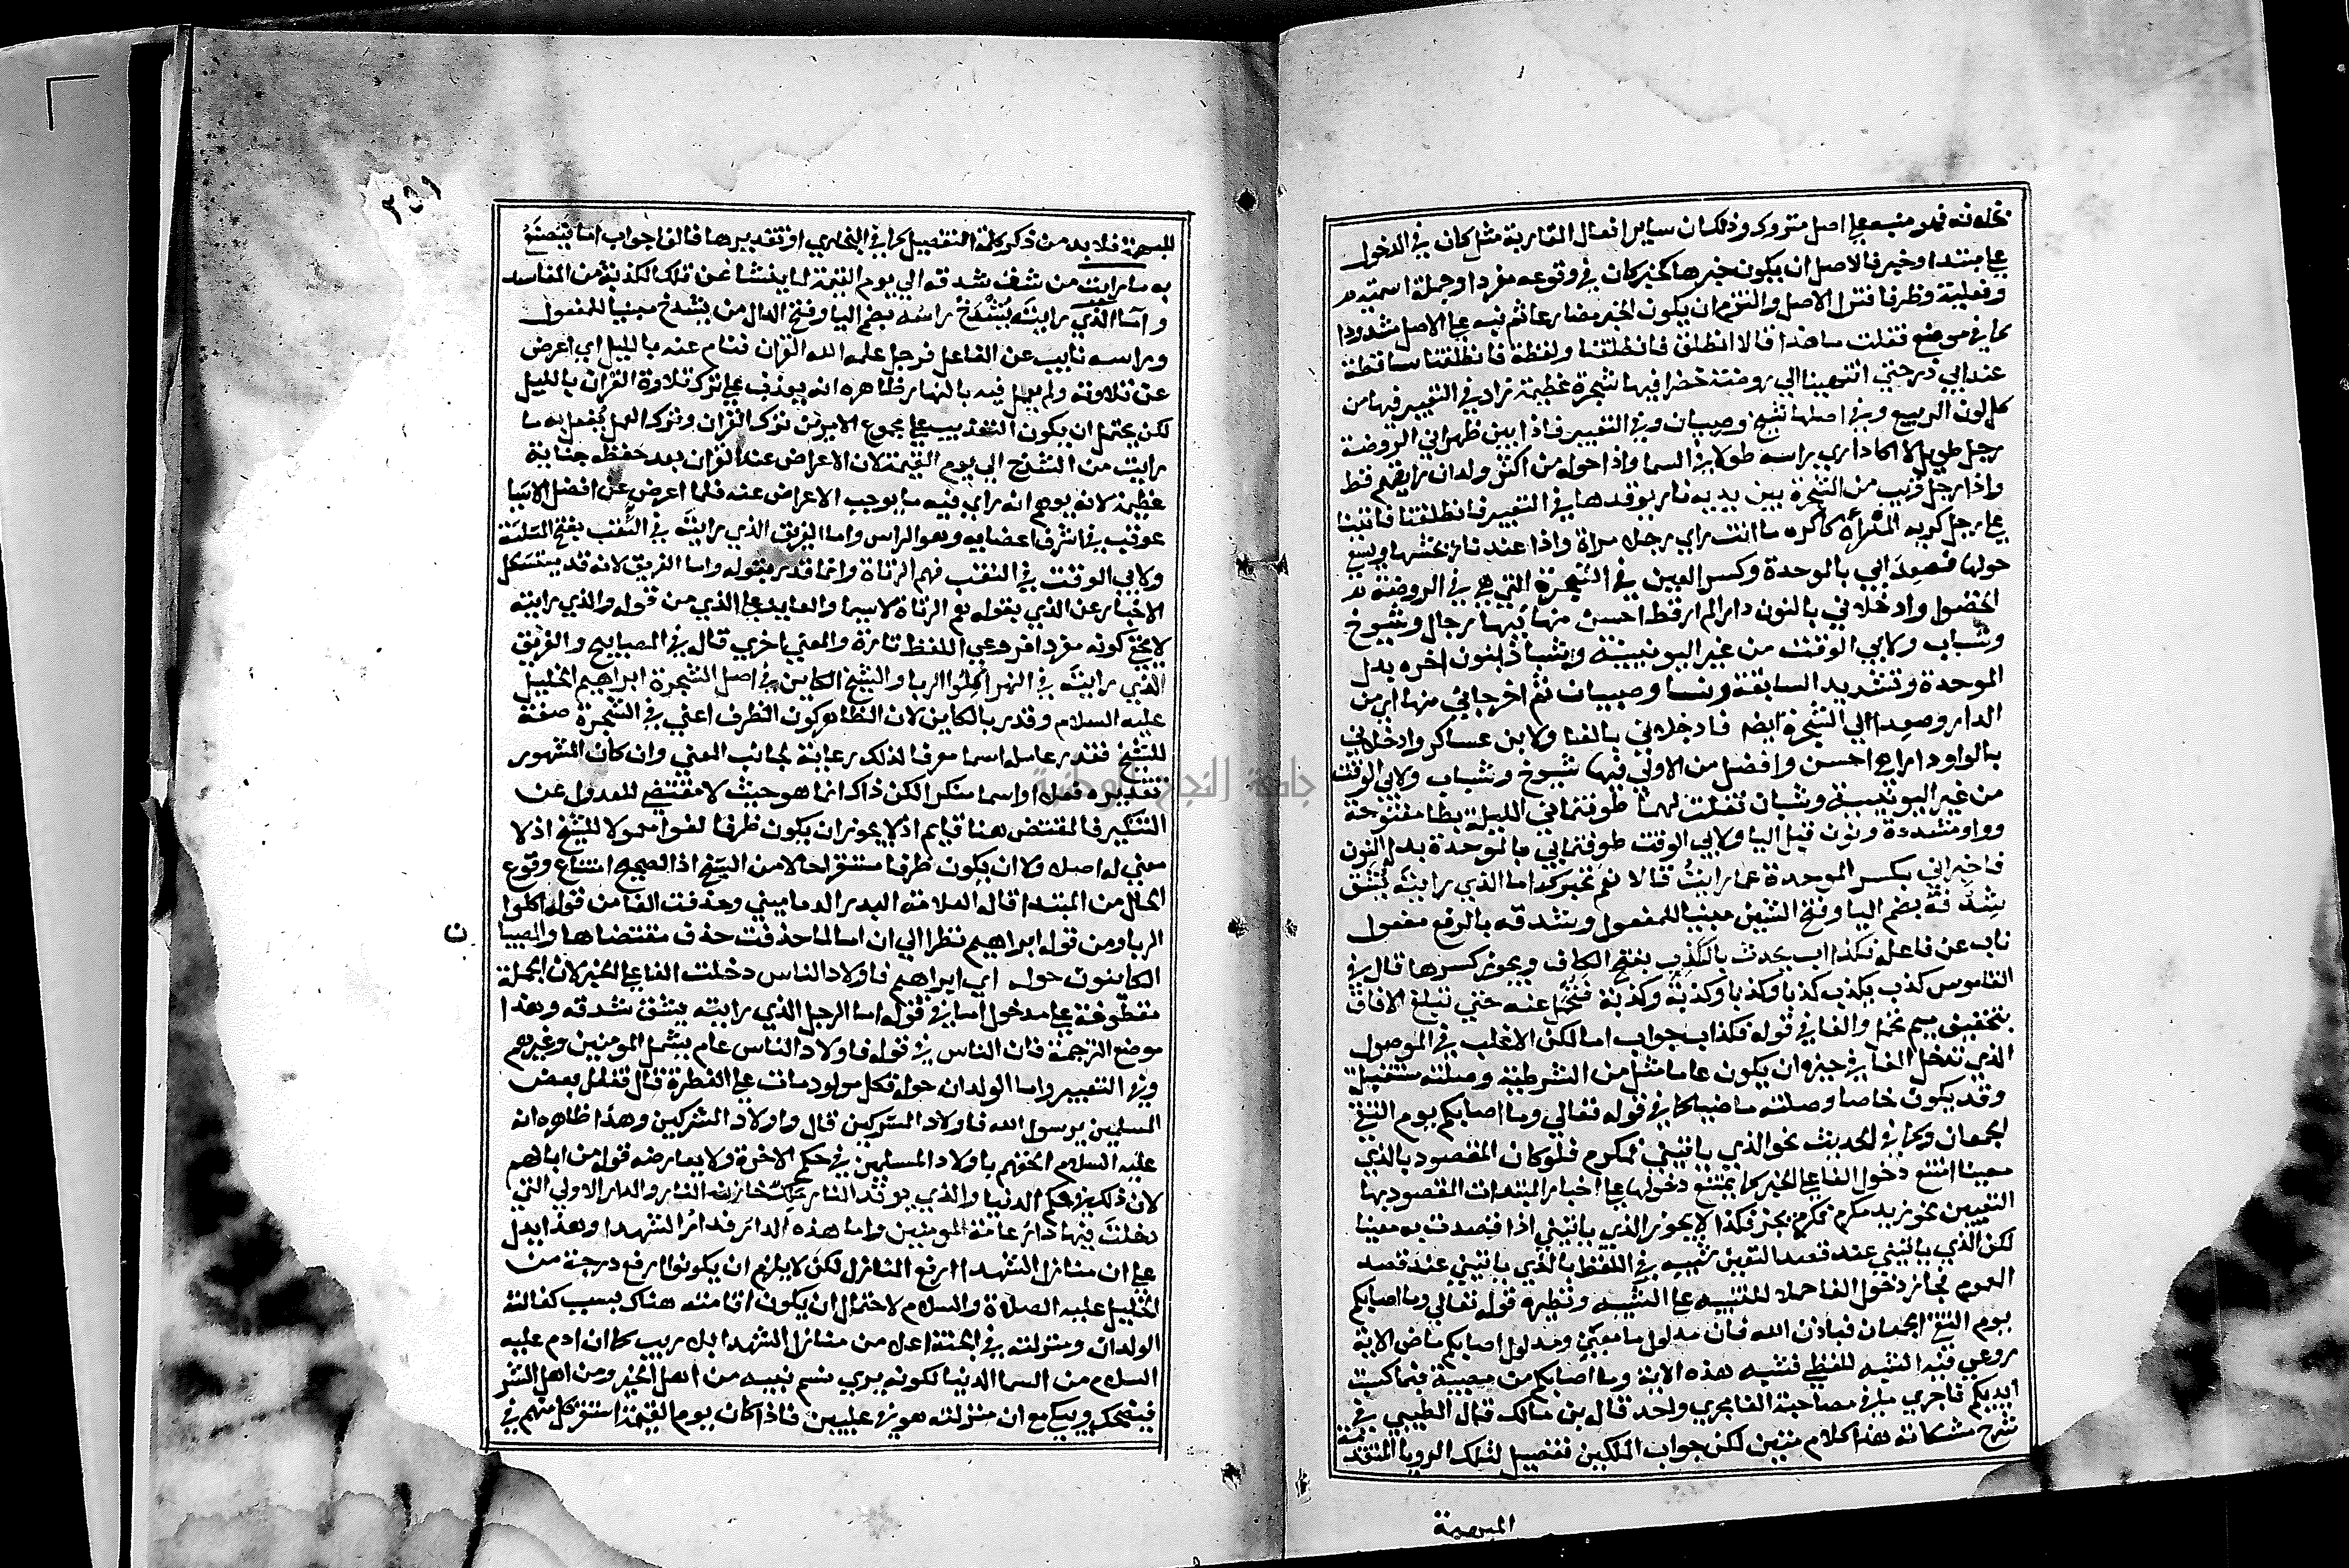 نخلافه فهو منبه على اصل متروك وذلك ان ساير افعال المقاربة مثل كان في الدخول
على مبتدا وخبر فالاصل ان يكون خبرها كخبر كان في وقوعه مفردا وجملة اسمية
وفعلية وظرفا فترك الاصل والتزم ان يكون الخبر مضارعا ثم نبه على الاصل شذوذا
كما في موضع فقلت ما هذا قالا انطلق فانطلقنا ولفظة فانطلقنا ساقطة
عند ابي ذر حتى انتهينا الى روضة خضرا فيها شجرة عظيمة زاد في التعبير فيها من
كل لون الربيع وفي اصلها شيخ وصبيان وفي التعبير فاذا بين ظهراني الروضة
رجل طويل لا اكاد اري راسه طولا في السما واذا حوله من اكثر ولدان رايتهم قط
واذا رجل قريب من الشجرة بين يديه نار يوقدها في التعبير فانطلقنا فاتينا
على رجل كريه المرآة كاكره ما انت راي رجلا مراة واذا عنده نار يحشها ويسعي
حولها فصعدا بي بالموحدة وكسر العين في الشجرة التي هي في الروضة
الخضرا وادخلاني بالنون دارا لم ار قط احسن منها فيها رجال وشيوخ
وشباب ولابي الوقت من غير اليونينية وشبان بنون اخره بدل
الموحدة وتشديد السابقة ونسا وصبيان ثم اخرجاني منها اي من
الدار وصعدا الي الشجرة ايضا فادخلاني بالفا ولابن عساكر وادخلاني
بالواو دارا هي احسن وافضل من الاولي فيها شيوخ وشباب ولابي الوقت
من غير اليونينية وشبان فقلت لهما طوفتماني الليلة بطا مفتوحة
وواو مشددة ونون قبل اليا ولابي الوقت طوفتمابي بالموحدة بدل النون
فاخبراني بكسر الموحدة عما رايت قالا نعم نخبرك اما الذي رايته يشق
شدقه بضم اليا وفتح الشين مبنيا للمفعول وشدقه بالرفع مفعول
نايب عن فاعله فكذاب يحدث بالكذب بفتح الكاف ويجوز كسرها قال في
القاموس كذب يكذب كذبا وكذبا وكذبة وكذبة فتحمل عنه حتي تبلغ الافاق
بتخفيف ميم تحمل والفا في قوله فكذاب جواب اما لكن الاغلب في الموصول
الذي تدخل الفا في خبره ان يكون عاما مثل من الشرطية وصلته مستقبلة
وقد يكون خاصا وصلته ماضيا كما في قوله تعالي وما اصابكم يوم التقي
الجمعان وكما في الحديث نحو الذي ياتيني فمكرم فلو كان المقصود بالذي
معينا امتنع دخول الفا على الخبر كما يمتنع دخولها على اخبار المبتدات المقصود بها
التعيين نحو زيد مكرم فمكرم لم يجز فكذا لا يجوز الذي ياتيني اذا قصدت به معينا
لكن الذي ياتيني عند قصد التعيين شبيه في اللفظ بالذي ياتيني عند قصد
العموم فجاز دخول الفا حملا للشبيه على الشبيه ونظيره قوله تعالي وما اصابكم
يوم التقي الجمعان فباذن الله فان مدلول ما معين ومدلول اصابكم ماض الا انه
روعي فيه الشبه اللفظي فشبه هذه الاية وما اصابكم من مصيبة فبما كسبت
ايديكم فاجري ما في مصاحبة الفا مجري واحد قال بن مالك قال الطيبي في
شرح مشكاته هذا كلام متين لكن جواب الملكين تفصيل لتلك الرويا المتقدمة
المبهمة
٢٥٩
المبهمة فلا بد من ذكر كلمة التفصيل كما في البخاري او تقديرها فالفا جواب اما فيصنع
به ما رايت من شق شدقه الي يوم القيمة لما ينشا عن تلك الكذبة من المفاسد
واما الذي رايته يشدخ راسه بضم اليا وفتح الدال من يشدخ مبنيا للمفعول
وراسه نايب عن الفاعل فرجل علمه الله القران فنام عنه بالليل اي اعرض
عن تلاوته ولم يعمل فيه بالنهار ظاهره انه يعذب على ترك تلاوة القران بالليل
لكن يحتمل ان يكون التعذيب على مجموع الامرين ترك القران وترك العمل يفعل به ما
رايت من الشدخ الي يوم القيمة لان الاعراض عن القران بعد حفظه جناية
عظيمة لانه يوهم انه راي فيه ما يوجب الاعراض عنه فلما اعرض عن افضل الاشيا
عوقب في اشرف اعضايه وهو الراس واما الفريق الذي رايته في الثقب بفتح المثلثة
ولابي الوقت في النقب فهم الزناة وانما قدر بقوله واما الفريق لانه قد يستشكل
الاخبار عن الذي بقوله هم الزناة لاسيما والعايد على الذي من قوله والذي رايته
لا يخفى كونه مفردا فروعي اللفظ تارة والمعني اخري قال في المصابيح والفريق
الذي رايته في النهر اكلوا الربا والشيخ الكاين في اصل الشجرة ابراهيم الخليل
عليه السلام وقدر بالكاين لان الظاهر كون الظرف اعني في الشجرة صفة
للشيخ فقدر عامله اسما معرفا لذلك رعاية لجانب المعني وان كان المشهور
تقديره فعلا او اسما منكرا لكن ذاك انما هو حيث لا مقتضي للعدول عن
التنكير فالمقتضي هنا قايم اذ لا يجوز ان يكون ظرفا لغوا معمولا للشيخ اذ لا
معني له اصلا ولا ان يكون ظرفا مستقرا حالا من الشيخ اذ الصحيح امتناع وقوع
الحال من المبتدا قال العلامة البدر الدماميني وحذفت الفا من قوله اكلوا
الربا ومن قوله ابراهيم نظرا الي ان اما لما حذفت حذف مقتضاها والصبيان
الكاينون حوله اي ابراهيم فاولاد الناس دخلت الفا على الخبر لان الجملة
معطوفة على مدخول اما في قوله اما الرجل الذي رايته يشق شدقه وهذا
موضع الترجمة فان الناس في قوله فاولاد الناس عام يشمل المومنين وغيرهم
وفي التعبير واما الولدان حوله فكل مولود مات على الفطرة قال فقال بعض
المسلمين يرسول الله فاولاد المشركين قال واولاد المشركين وهذا ظاهره انه
عليه السلام الحقهم باولاد المسلمين في حكم الاخرة ولا يعارضه قوله من ابائهم
لان ذلك في حكم الدنيا والذي يوقد النار مالك خازن النار والدار الاولي التي
دخلت فيها دار عامة المومنين واما هذه الدار فدار الشهدا وهذا يدل
على ان منازل الشهدا ارفع المنازل لكن لا يلزم ان يكونوا ارفع درجة من
الخليل عليه الصلاة والسلام لاحتمال ان يكون اقامته هناك بسبب كفالته
الولدان ومنزلته في الجنة اعلا من منازل الشهدا بلا ريب كما ان ادم عليه
السلام من السما الدنيا لكونه يري نسم بنيه من اهل الخير ومن اهل الشر
فيضحك ويبكي مع ان منزلته هو في عليين فاذا كان يوم القيمة استقر كل منهم في
ن
جامعة النجاح الوطنية